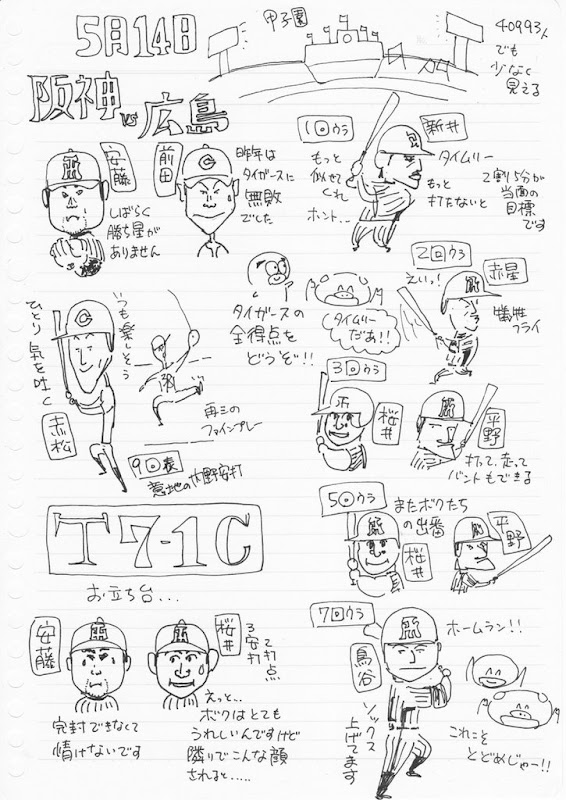 5月14日
甲子園
40993人
でも
少なく
見える
阪神vs広島
安藤
しばらく
勝ち星が
ありません
前田
昨年は
タイガースに
無敗
でした
1回ウラ
新井
もっと
似せて
くれ
ホント…
タイムリー
もっと
打たないと
2割5分が
当面の
目標
です
タイガースの
全得点を
どうぞ!!
タイムリー
だあ!!
2回ウラ
えいっ!
赤星
犠牲
フライ
いつも楽しそう
ひとり気を吐く
赤松
再三の
ファインプレー
9回表
意地の内野安打
3回ウラ
桜井
平野
打って、走って
バントもできる
5回ウラ
またボクたち
の出番
桜井
平野
T7-1C
お立ち台…
安藤
完封できなくて
情けないです
桜井
3安打
2打点
えっと…
ボクはとても
うれしいんですけど
隣りでこんな顔
されると……
7回ウラ
ホームラン!!
鳥谷
ソックス
上げてます
これこそ
とどめじゃー!!